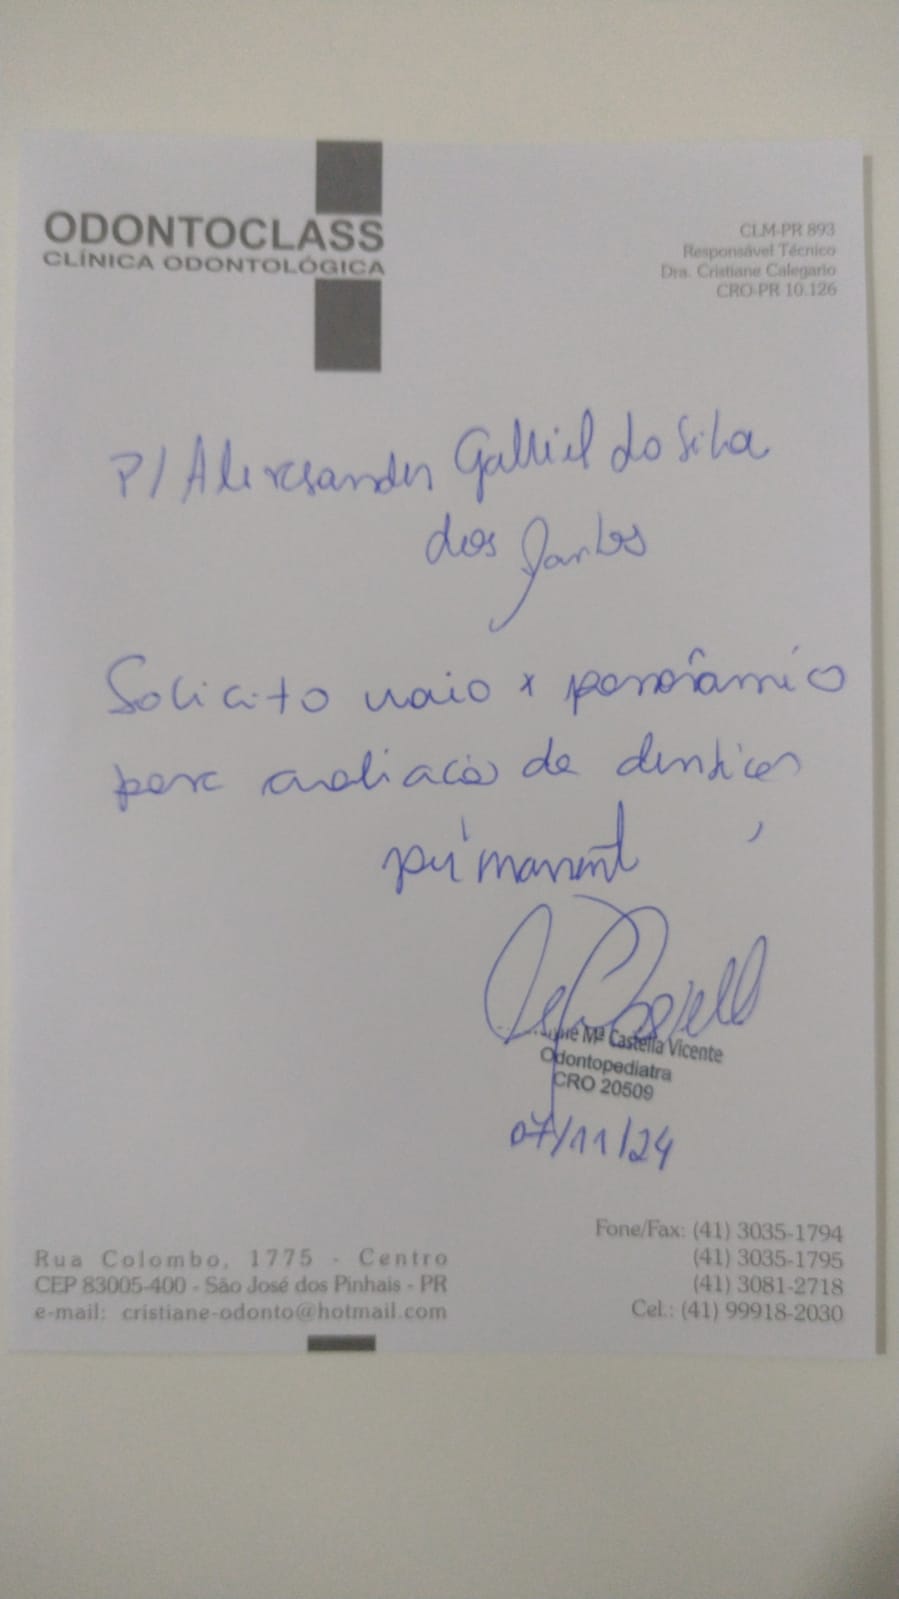 ODONTOCLASS
CLÍNICA ODONTOLÓGICA
CLM-PR 893
Responsável Técnico
Dra. Cristiane Calegario
CRO-PR 10.126
P/ Alexsander Gabriel da Silva
dos Santos
Solicito raio x panorâmico
para avaliação de dentição
permanent
Mª Castella Vicente
Odontopediatra
CRO 20509
07/11/24
Rua Colombo, 1775 - Centro
CEP 83005-400 - São José dos Pinhais - PR
e-mail: cristiane-odonto@hotmail.com
Fone/Fax: (41) 3035-1794
(41) 3035-1795
(41) 3081-2718
Cel.: (41) 99918-2030